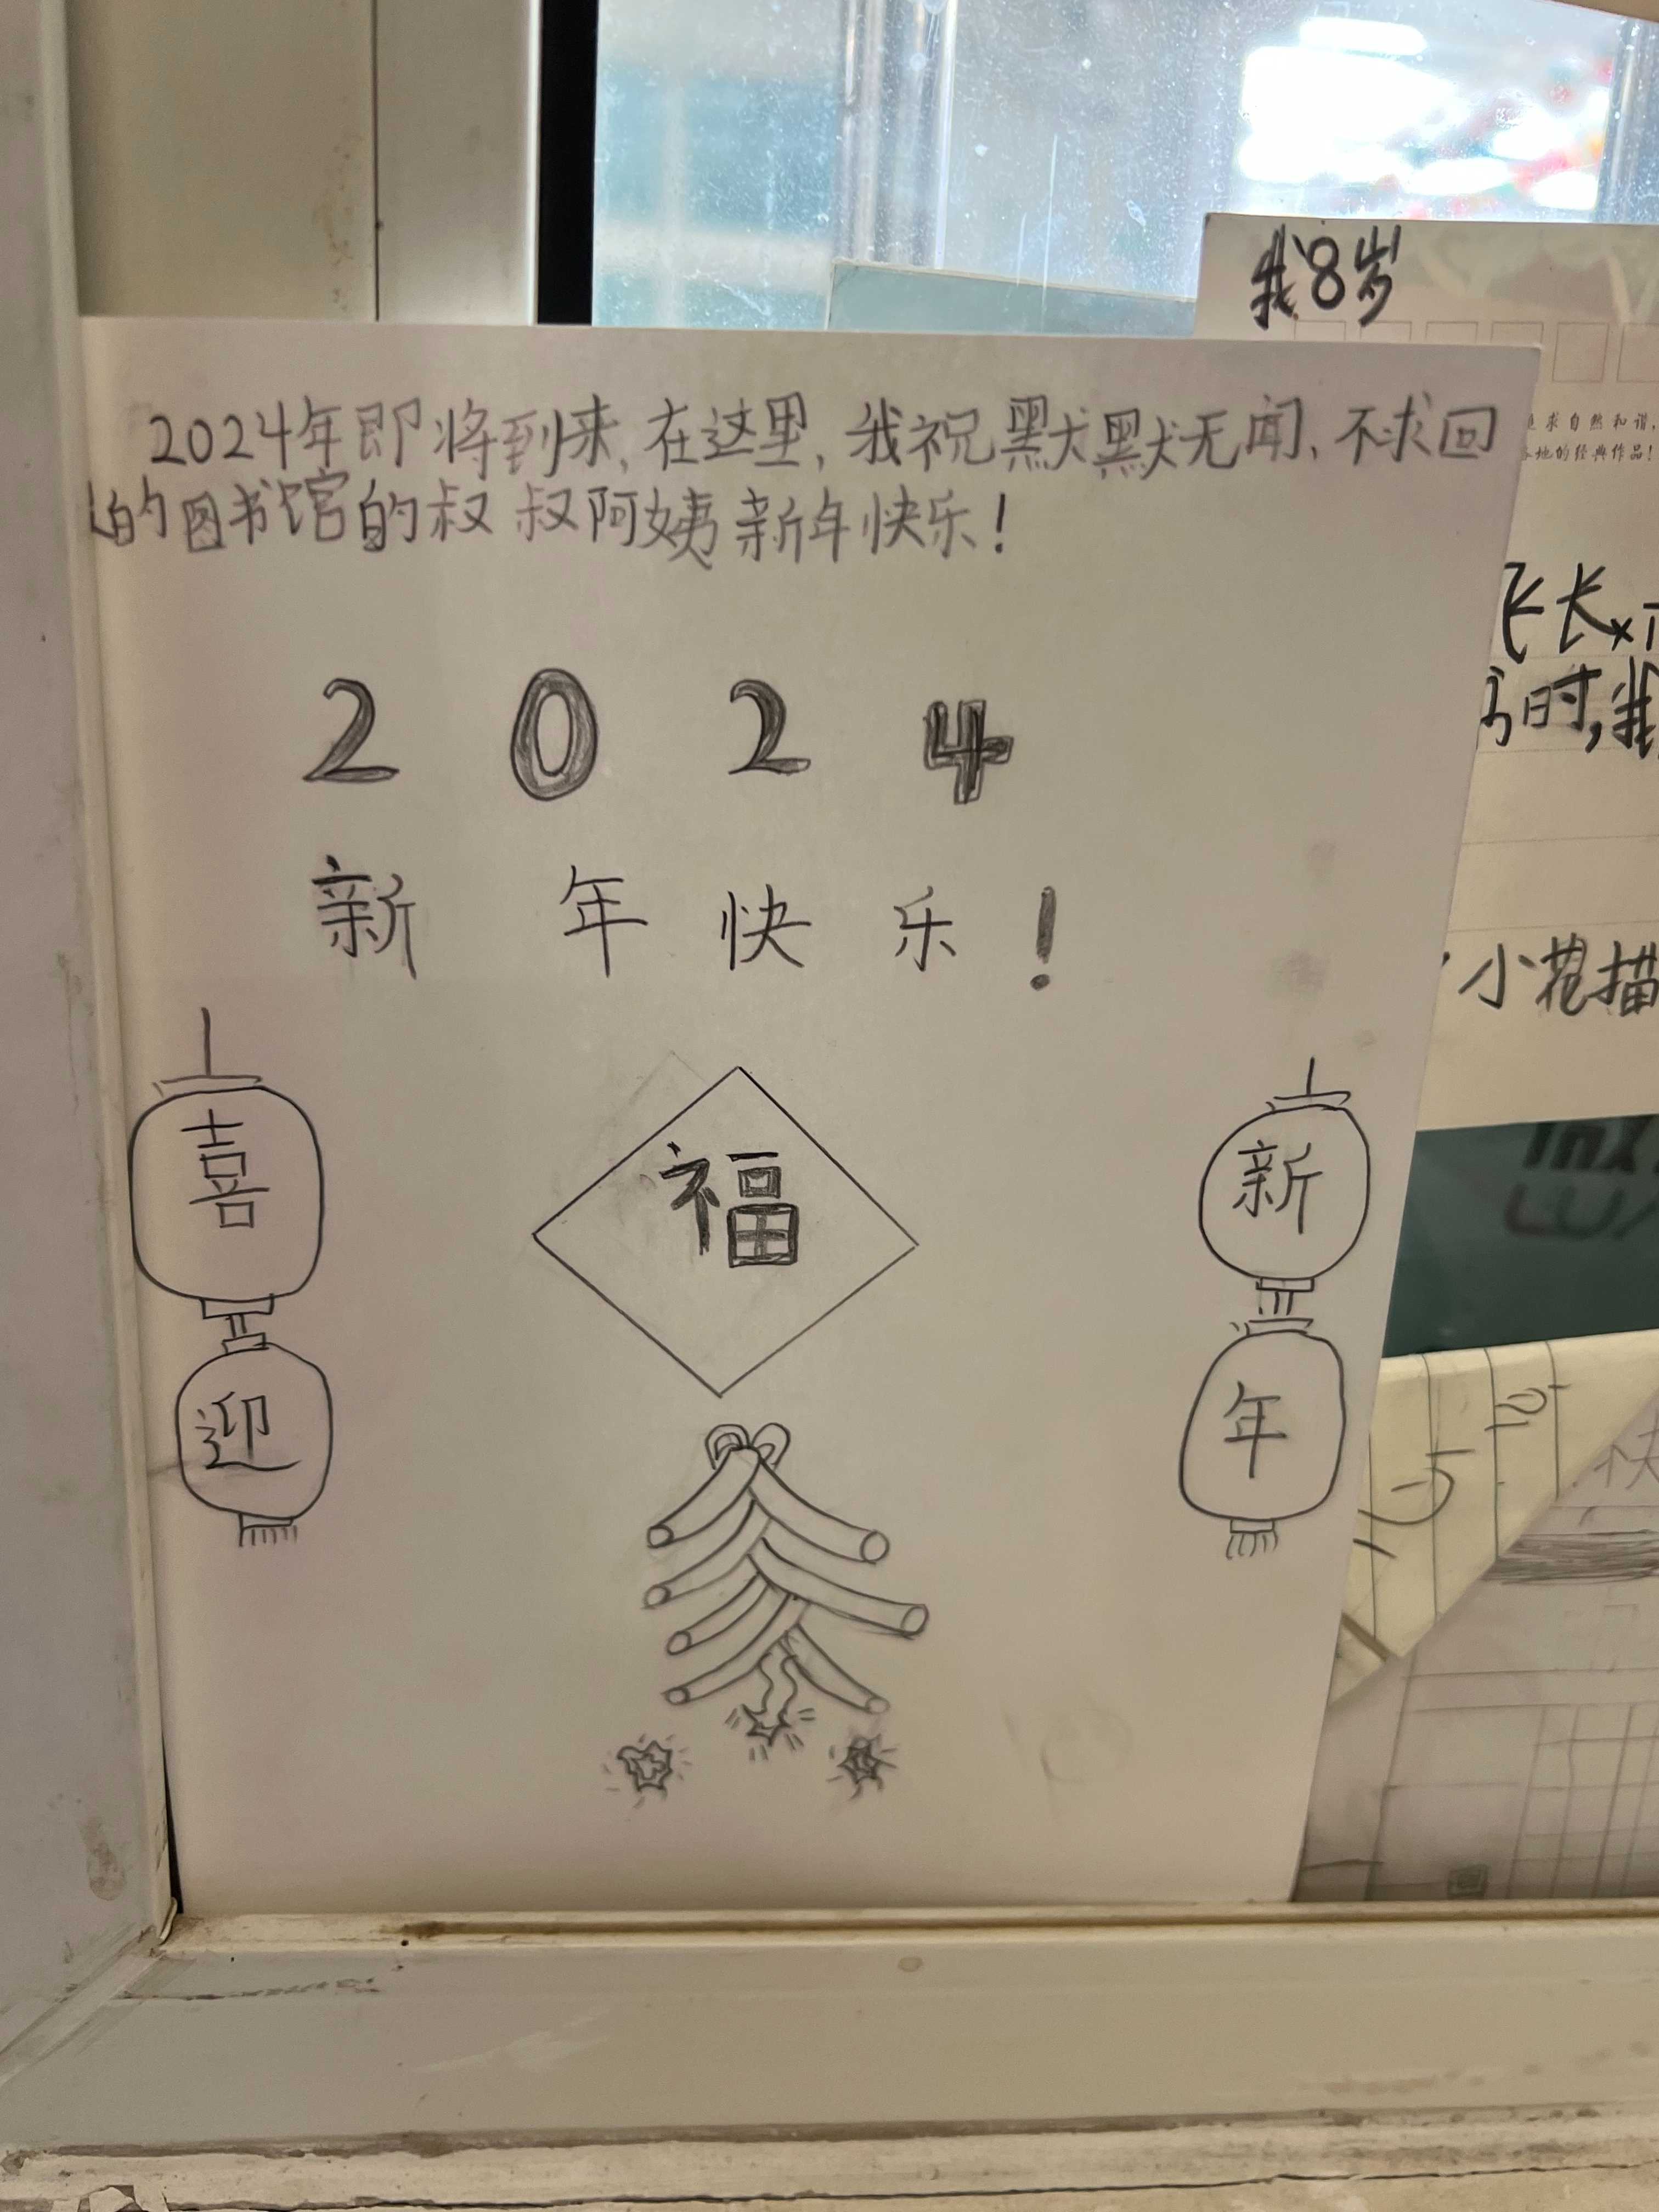 我8岁
2024年即将到来,在这里,我祝默默无闻、不求回
的图书馆的叔叔阿姨新年快乐!
求自然和谐,
地的经典作品!
2024
新年快乐!
长
时,我
小花描
喜
迎
福
新
年